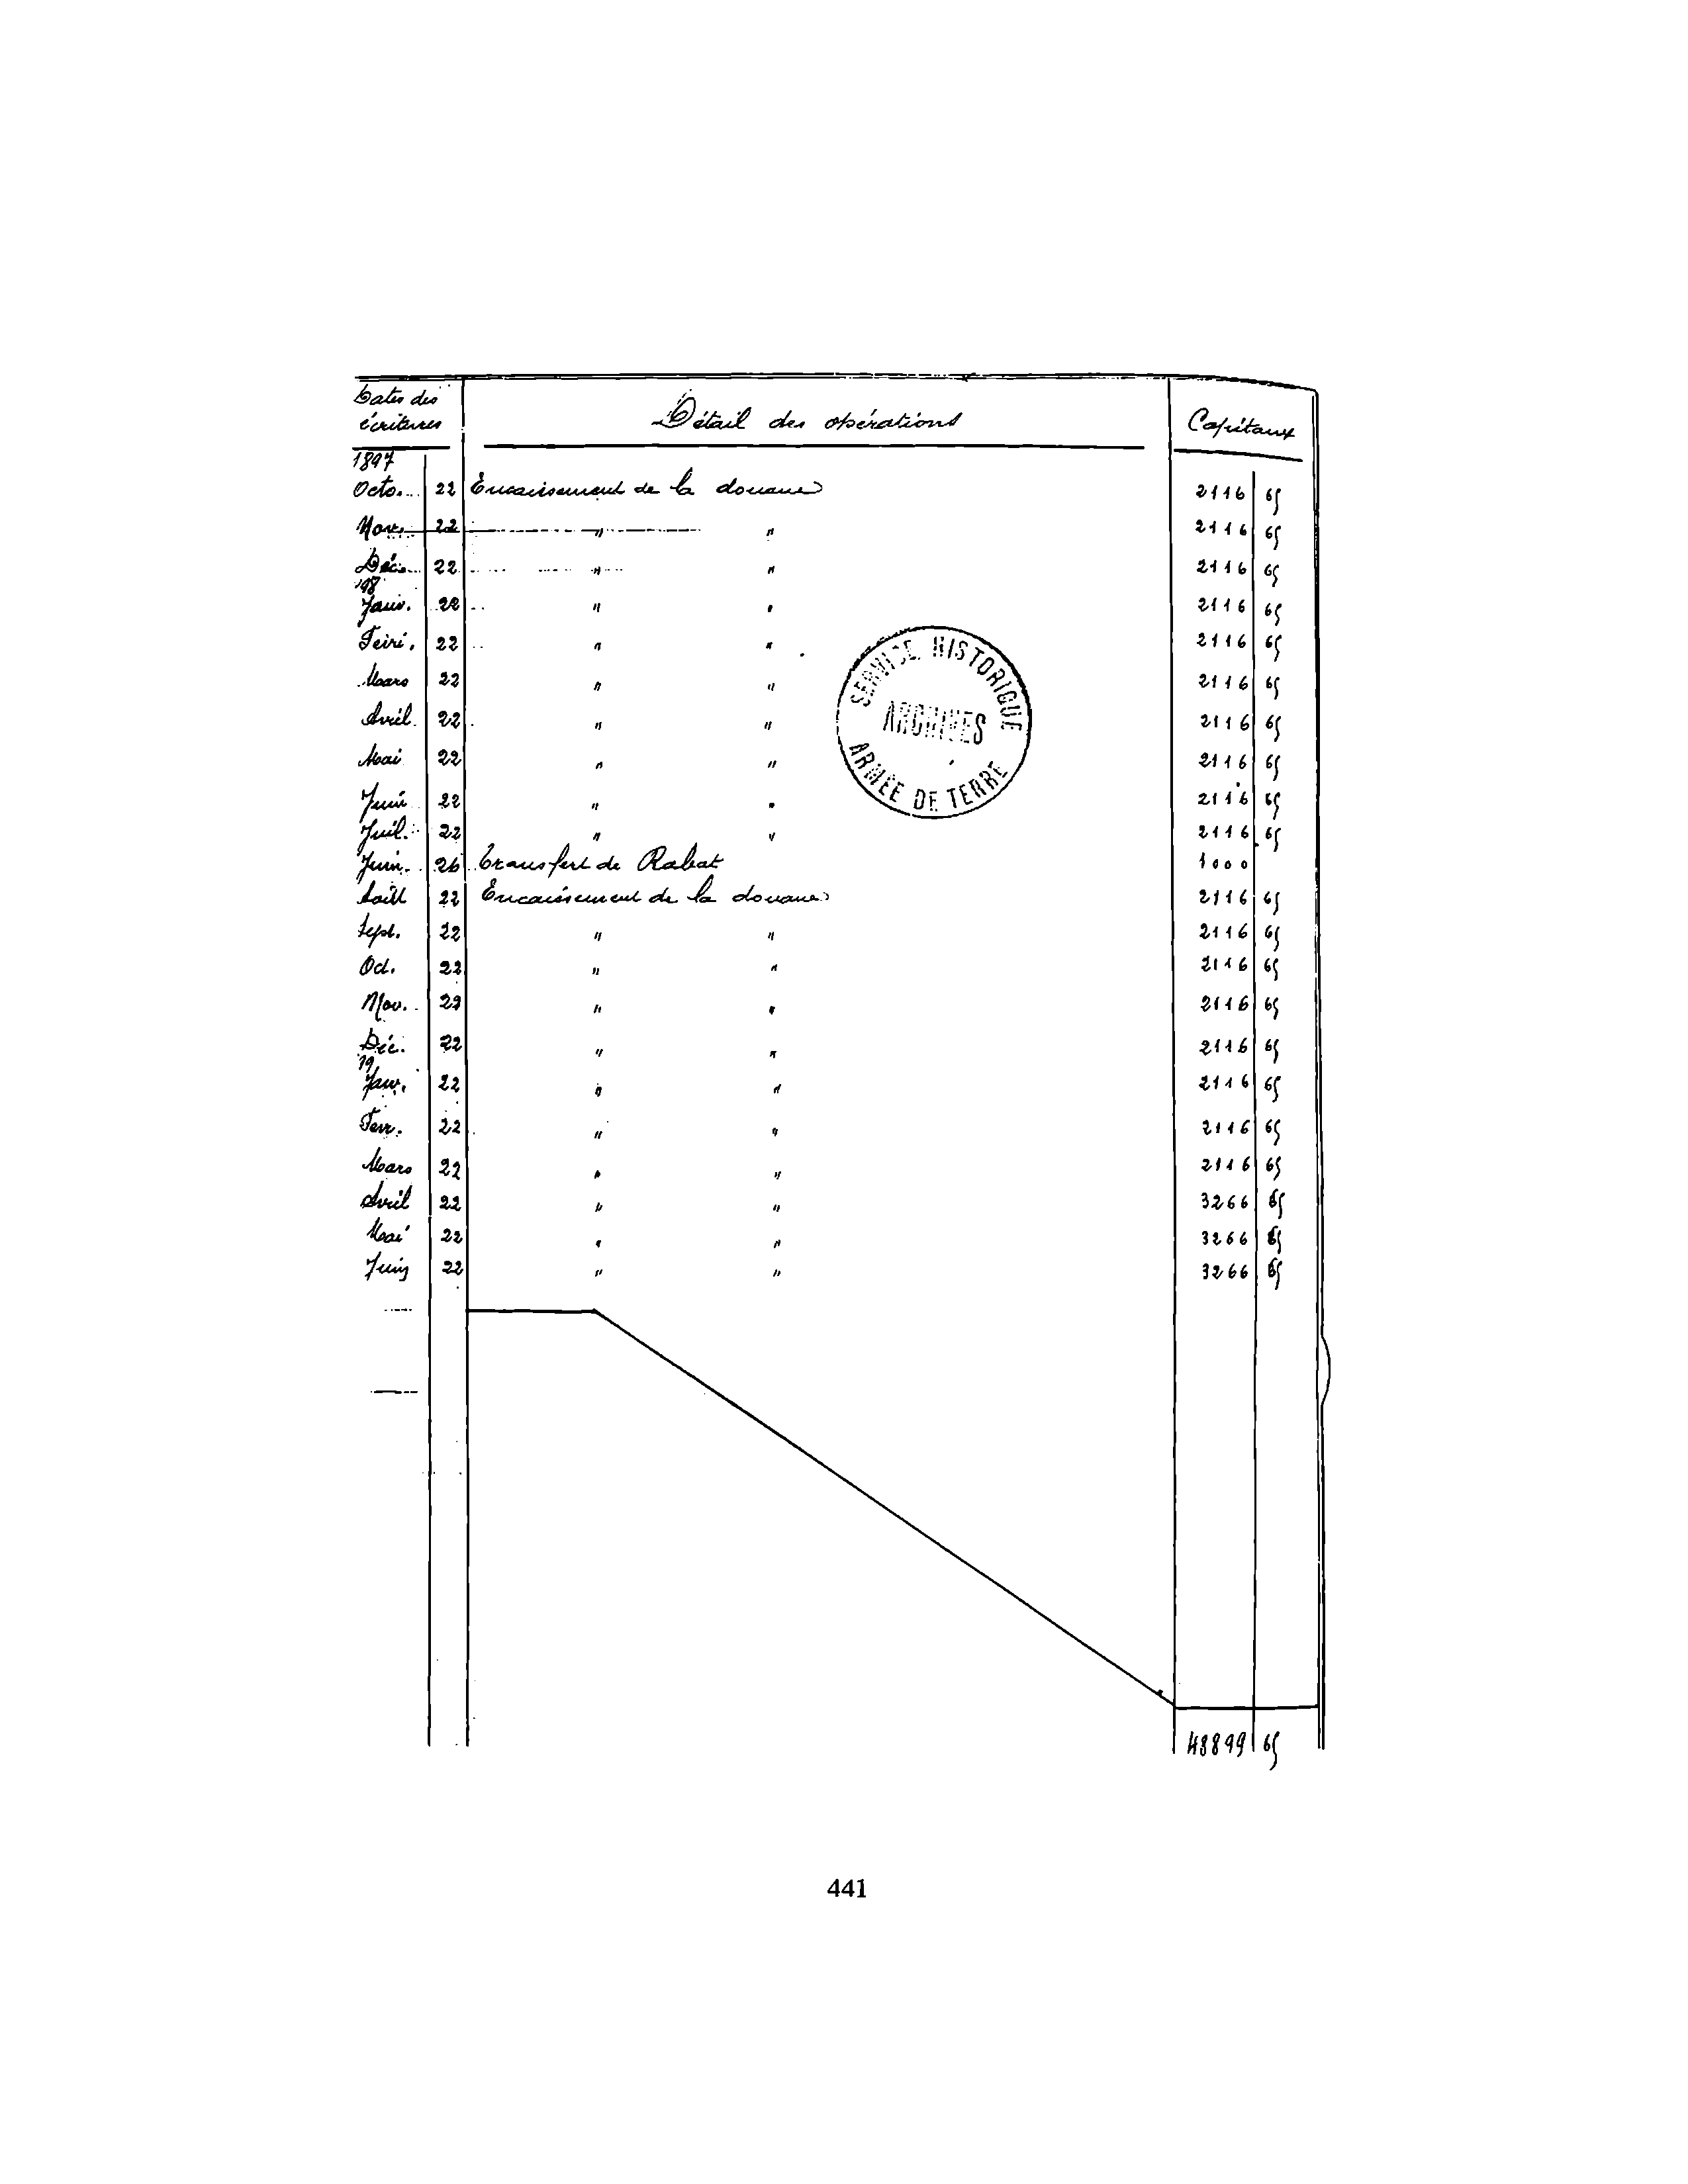 Dates des écritures Détail des opérations Capitaux
1897
Octo. 22 Encaissement de la douane 2116 65
Nov. 22 " " 2116 65
Déc. 22 " " 2116 65
98
Janv. 22 " " 2116 65
22 " " 2116 65
Mars 22 " " 2116 65
Avril 22 " " 2116 65
Mai 22 " " 2116 65
Juin 22 " " 2116 65
Juil. 22 " " 2116 65
Juin. 26 Transfert de Rabat 1000
Août 22 Encaissement de la douane 2116 65
Sept. 22 " " 2116 65
Oct. 22 " " 2116 65
Nov. 22 " " 2116 65
Déc. 22 " " 2116 65
Janv. 22 " " 2116 65
Fevr. 22 " " 2116 65
Mars 22 " " 2116 65
Avril 22 " " 3266 65
Mai 22 " " 3266 65
Juin 22 " " 3266 65
SERVICE HISTORIQUE
ARCHIVES
ARMÉE DE TERRE
48899 65
441